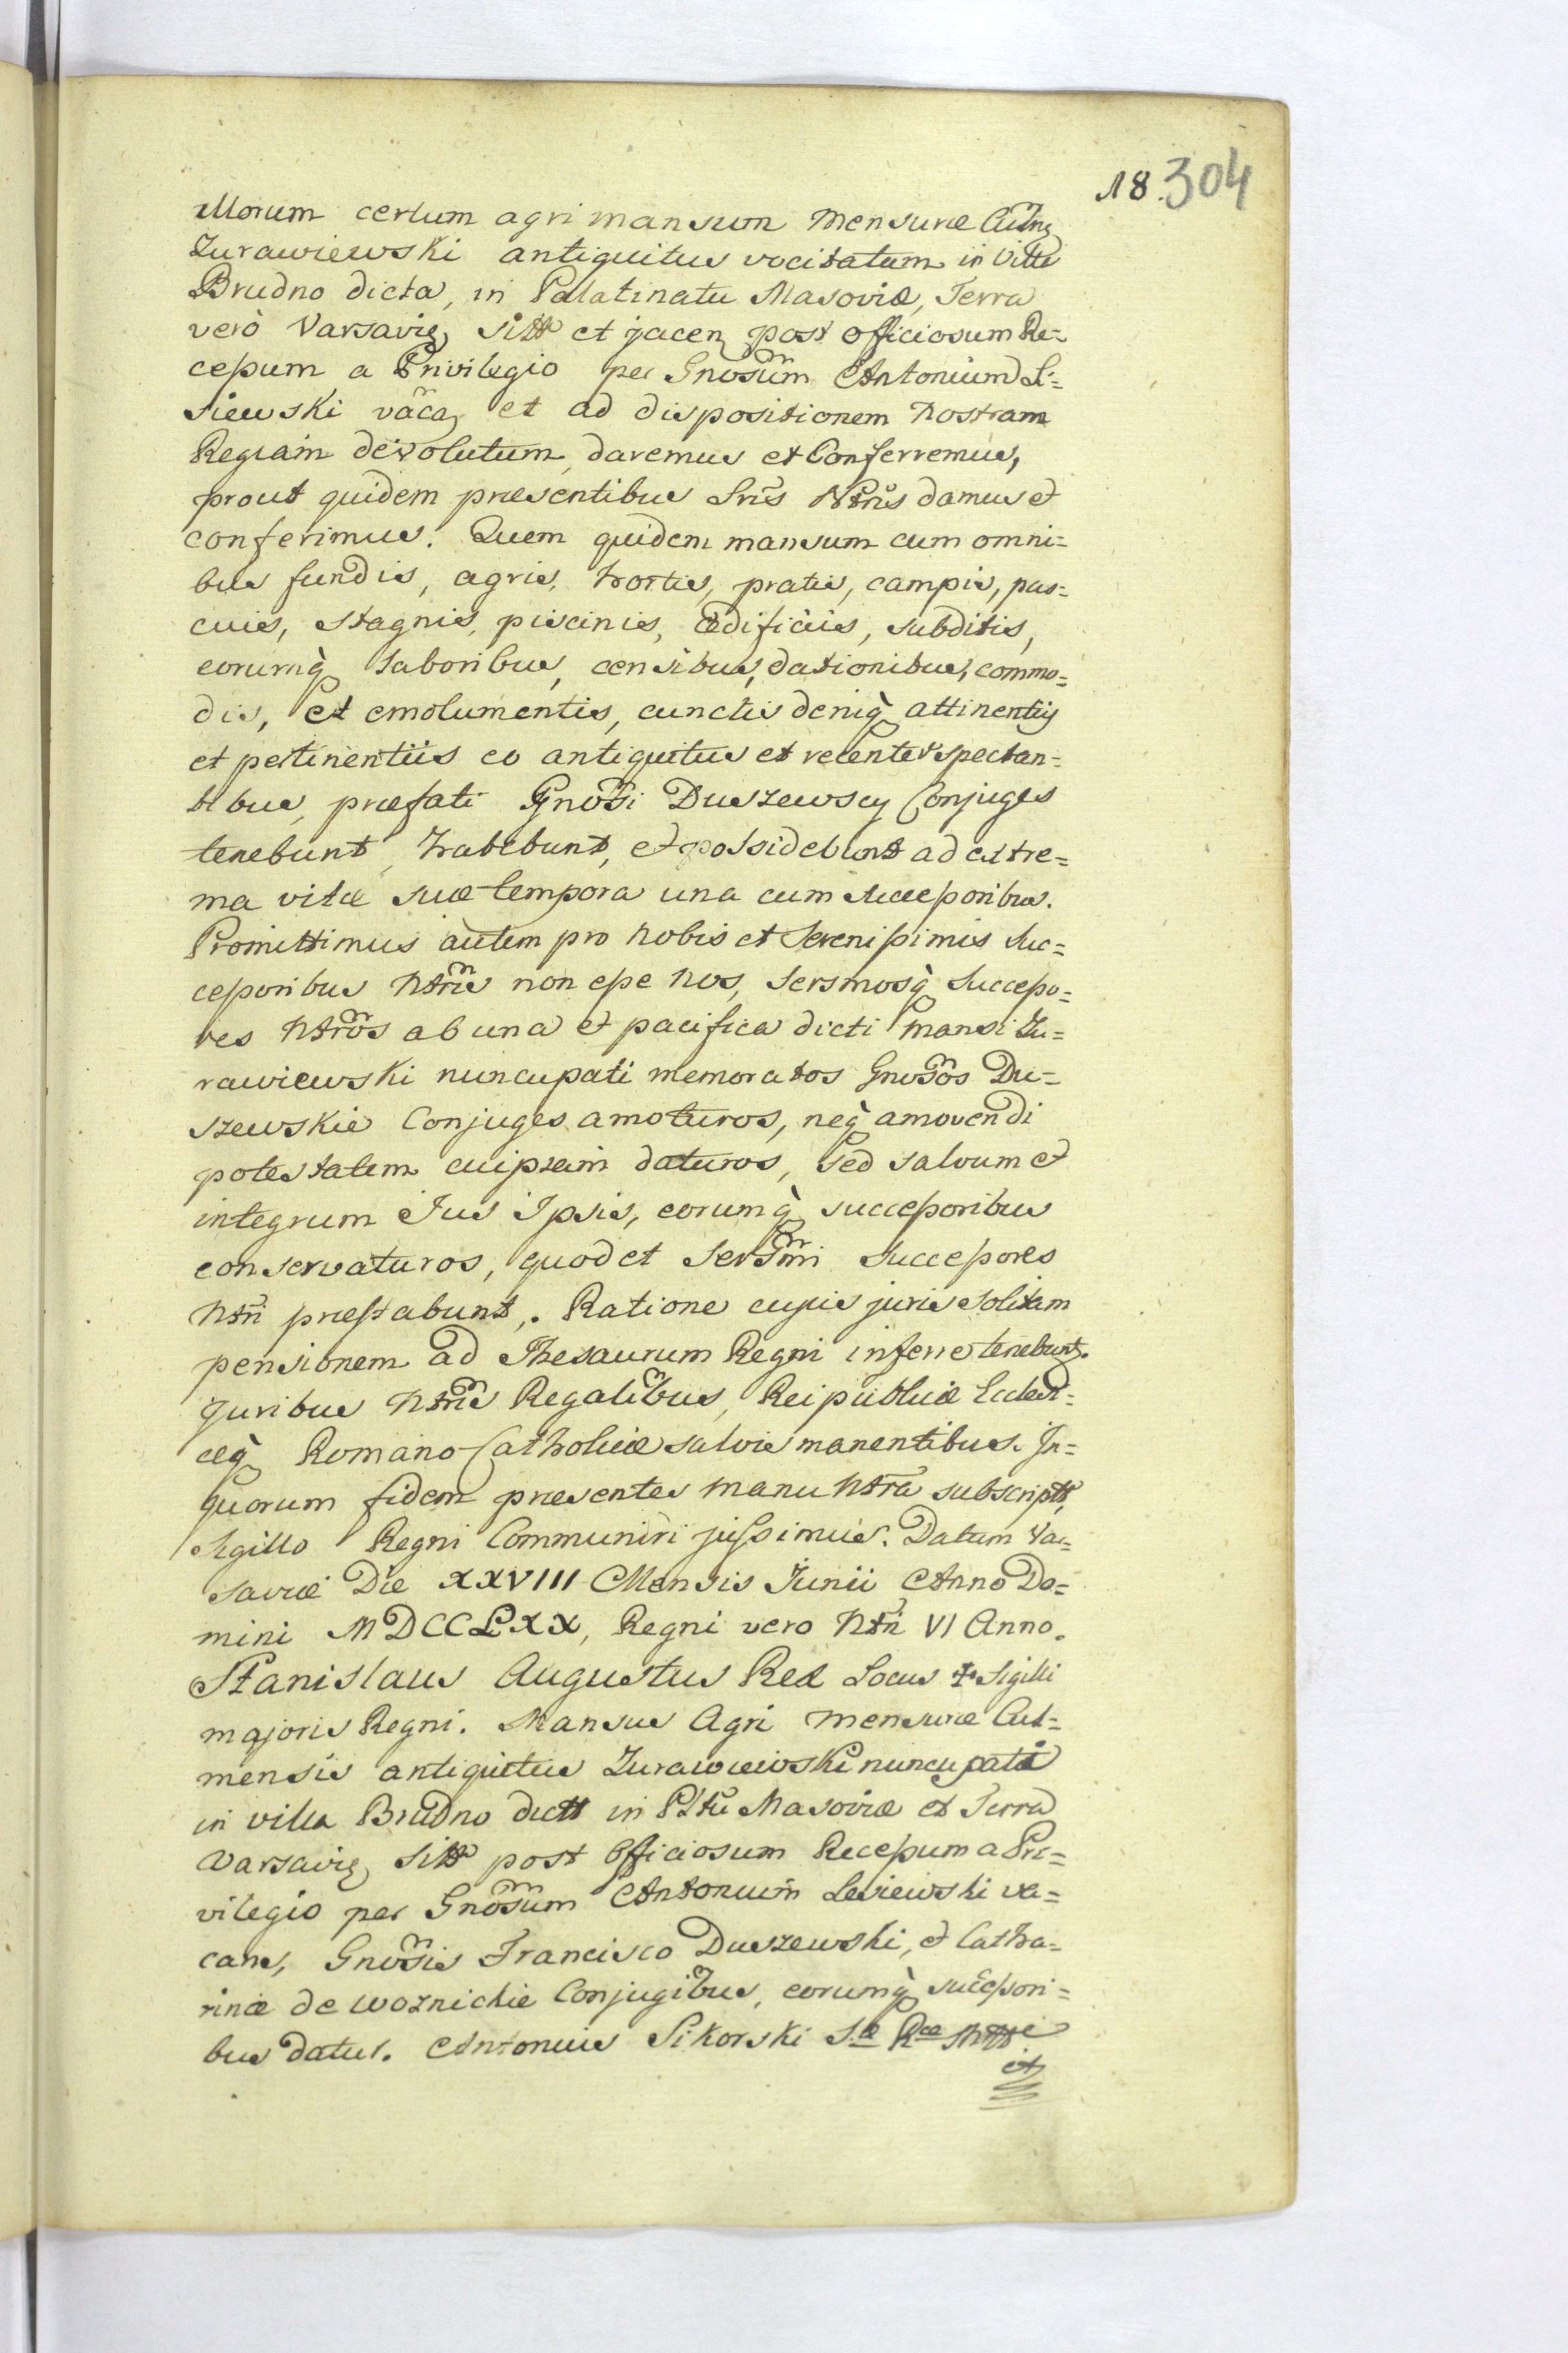 18. 304
illorum certum agri mansum mensuræ Culmẽ
Zurawiewski antiquitus vocitatum in Villa
Brudno dicta, in Palatinatu Masoviæ, Terra
verò Varsavię sitt et jacen post officiosum Re=
cessum a Privilegio per Gnosum Antonium Li=
siewski vacã et ad dispositionem nostram
Regiam devolutum daremus et Conferremus,
prout quidem præsentibus Lris Ntris damus et
conferimus. Quem quidem mansum cum omni=
bus fundis, agris, hortis, pratis, campis, pas=
cuis, stagnis, piscinis, ædificiis, subditis,
eorumq̀ laboribus, censibus, dationibus, commo=
dis, et emolumentis, cunctis deniq̀ attinentiis
et pertinentiis eo antiquitus et recenter spectan=
tibus, præfati Gnosi Duszewscy Conjuges
tenebunt, habebunt, et possidebunt ad extre=
ma vitæ suæ tempora una cum successoribus.
Promittimus autem pro nobis et Serenissimis Suc=
cessoribus Ntris non esse nos, Sersmosq̀ Successo=
res Ntros ab una et pacifica dicti mansi Zu=
rawiewski nuncupati memoratos Gnosos Du=
szewskie Conjuges amoturos, neq̀ amovendi
potestatem cuipiam daturos, sed salvum et
integrum Jus Ipsis, eorumq̀ successoribus
conservaturos, quod et Sersmi Successores
Ntri præstabunt. Ratione cujus juris solitam
pensionem ad Thesaurum Regni inferre tenebunt.
Juribus Ntris Regalibus, Reipublicæ Ecclesi=
æq̀ Romano Catholicæ salvis manentibus. In=
quorum fidem præsentes manu Ntra subscriptt,
Sigillo Regni Communiri jussimus. Datum Var=
saviæ Die XXVIII Mensis Junii Anno Do=
mini MDCCLXX, Regni vero Ntri VI Anno.
Stanislaus Augustus Rex Locus + Sigilli
majoris Regni. Mansus Agri mensuræ Cul=
mensis antiquitus Zurawiewski nuncupati
in villa Brudno dictt in Pltu Masoviæ et Terra
Varsavię sitt post Officiosum Recessum a Pri=
vilegio per Gnosum Antonium Lisiewski va=
cans, Gnosis Francisco Duszewski, et Catha=
rinæ de Woznickie Conjugibus, eorumq̀ successori=
bus datur. Antonius Sikorski S. R.